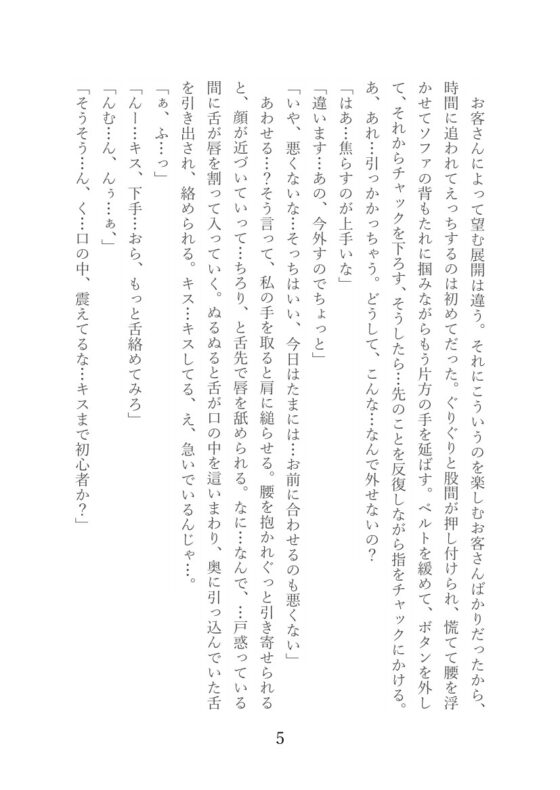 お客さんによって望む展開は違う。それにこういうのを楽しむお客さんばかりだったから、
時間に追われてえっちするのは初めてだった。ぐりぐりと股間が押し付けられ、慌てて腰を浮
かせてソファの背もたれに掴みながらもう片方の手を延ばす。ベルトを緩めて、ボタンを外し
て、それからチャックを下ろす、そうしたら…先のことを反復しながら指をチャックにかける。
あ、あれ…引っかかっちゃう。どうして、こんな…なんで外せないの？
「はあ…焦らすのが上手いな」
「違います…あの、今外すのでちょっと」
「いや、悪くないな…そっちはいい、今日はたまには…お前に合わせるのも悪くない」
あわせる…？そう言って、私の手を取ると肩に縋らせる。腰を抱かれぐっと引き寄せられる
と、顔が近づいていって…ちろり、と舌先で唇を舐められる。なに…なんで、…戸惑っている
間に舌が唇を割って入っていく。ぬるぬると舌が口の中を這いまわり、奥に引っ込んでいた舌
を引き出され、絡められる。キス…キスしてる、え、急いでいるんじゃ…。
「ぁ、ふ…っ」
「んー…キス、下手…おら、もっと舌絡めてみろ」
「んむ…ん、んぅ…ぁ、」
「そうそう…ん、く…口の中、震えてるな…キスまで初心者か？」
5